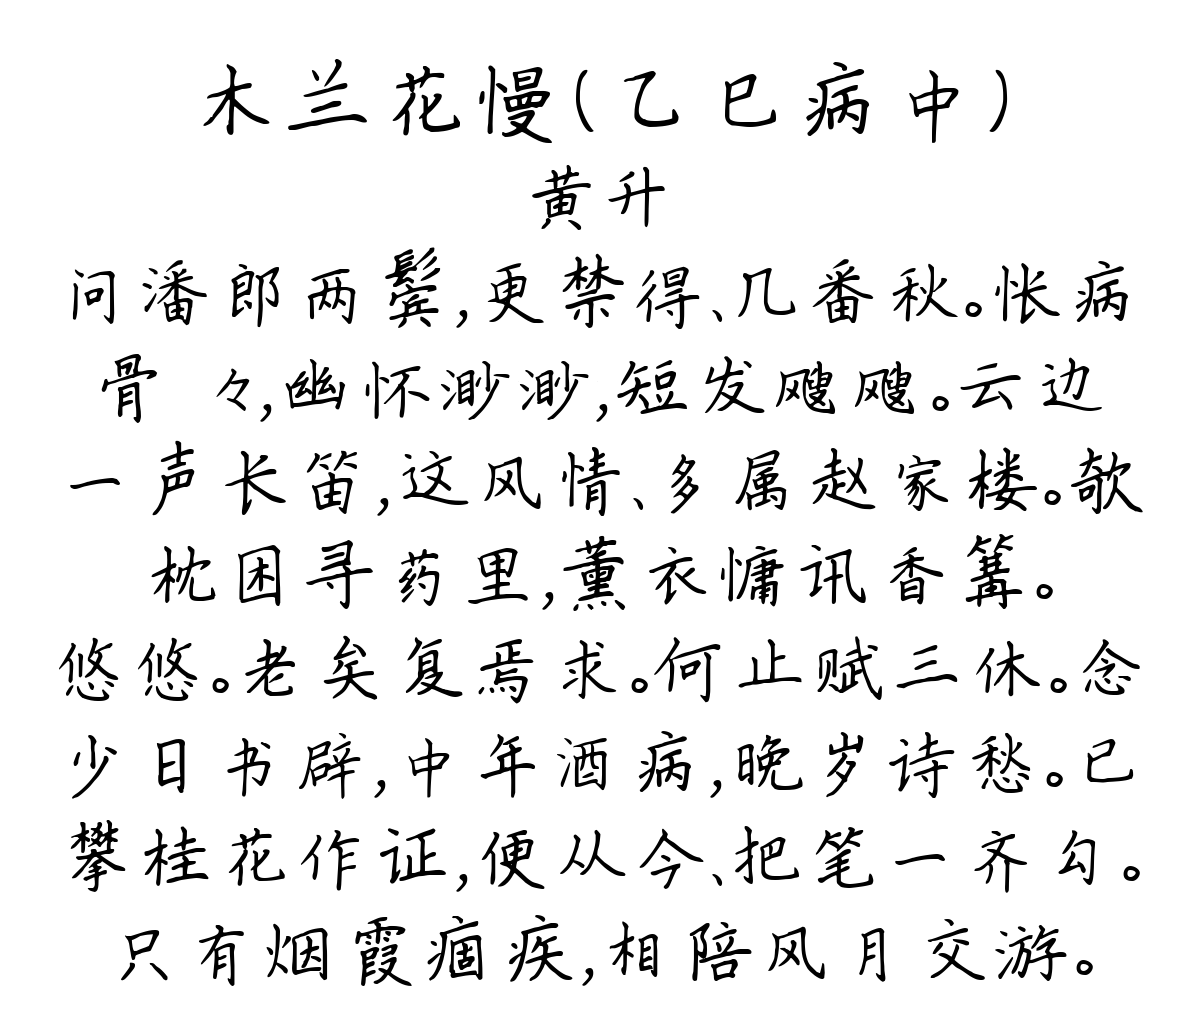 木兰花慢(乙巳病中)
黄升
问潘郎两鬓,更禁得、几番秋。怅病
骨 々,幽怀渺渺,短发飕飕。云边
一声长笛,这风情、多属赵家楼。欹
枕困寻药里,薰衣慵讯香篝。
悠悠。老矣复焉求。何止赋三休。念
少日书辟,中年酒病,晚岁诗愁。已
攀桂花作证,便从今、把笔一齐勾。
只有烟霞痼疾,相陪风月交游。